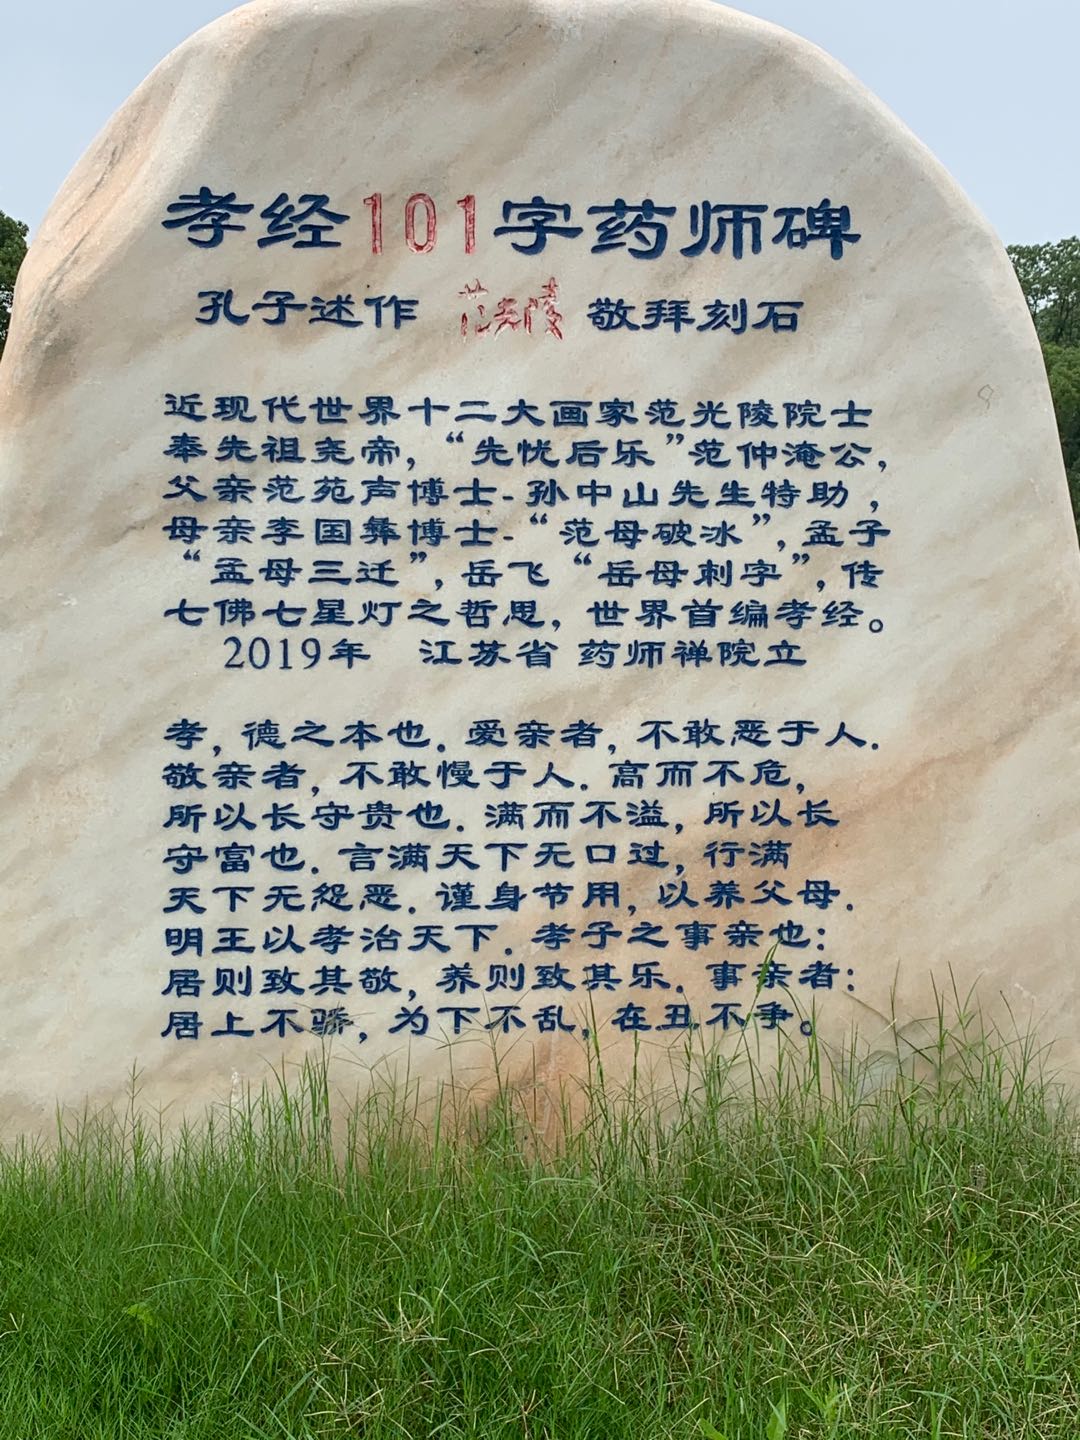 孝经101字药师碑
孔子述作 范光陵 敬拜刻石
近现代世界十二大画家范光陵院士
奉先祖尧帝，“先忧后乐”范仲淹公，
父亲范苑声博士-孙中山先生特助，
母亲李国彝博士-“范母破冰”，孟子
“孟母三迁”，岳飞“岳母刺字”，传
七佛七星灯之哲思，世界首编孝经。
2019年 江苏省 药师禅院立
孝，德之本也．爱亲者，不敢恶于人．
敬亲者，不敢慢于人．高而不危，
所以长守贵也．满而不溢，所以长
守富也．言满天下无口过，行满
天下无怨恶．谨身节用，以养父母．
明王以孝治天下．孝子之事亲也：
居则致其敬，养则致其乐．事亲者：
居上不骄，为下不乱，在丑不争。